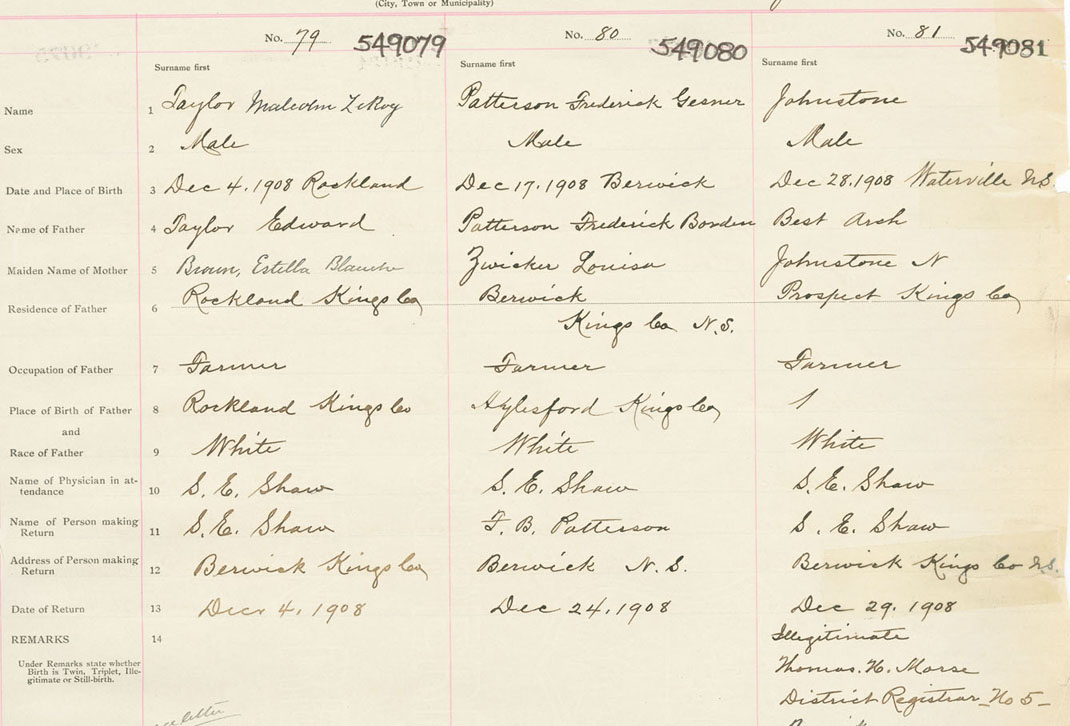 (City, Town or Municipality)
No. 79 549079 No. 80 549080 No. 81 549081
Surname first Surname first Surname first
Name 1 Taylor Malcolm LeRoy Patterson Frederick Gesner Johnstone
Sex 2 Male Male Male
Date and Place of Birth 3 Dec 4. 1908 Rockland Dec 17. 1908 Berwick Dec 28. 1908 Waterville N.S.
Name of Father 4 Taylor Edward Patterson Frederick Borden Best Arch
Maiden Name of Mother 5 Brown, Estella Blanche Zwicker Louisa Johnstone N
Residence of Father 6 Rockland Kings Co Berwick Prospect Kings Co
Kings Co N.S.
Occupation of Father 7 Farmer Farmer Farmer
Place of Birth of Father 8 Rockland Kings Co Aylesford Kings Co
and
Race of Father 9 White White White
Name of Physician in at-
tendance 10 S. E. Shaw S. E. Shaw S. E. Shaw
Name of Person making
Return 11 S. E. Shaw F. B. Patterson S. E. Shaw
Address of Person making
Return 12 Berwick Kings Co Berwick N. S. Berwick Kings Co N.S.
Date of Return 13 4. 1908 Dec 24. 1908 Dec 29. 1908
REMARKS 14 Illegitimate
Under Remarks state whether
Birth is Twin, Triplet, Ille-
gitimate or Still-birth.
Thomas. H. Morse
District Registrar No 5